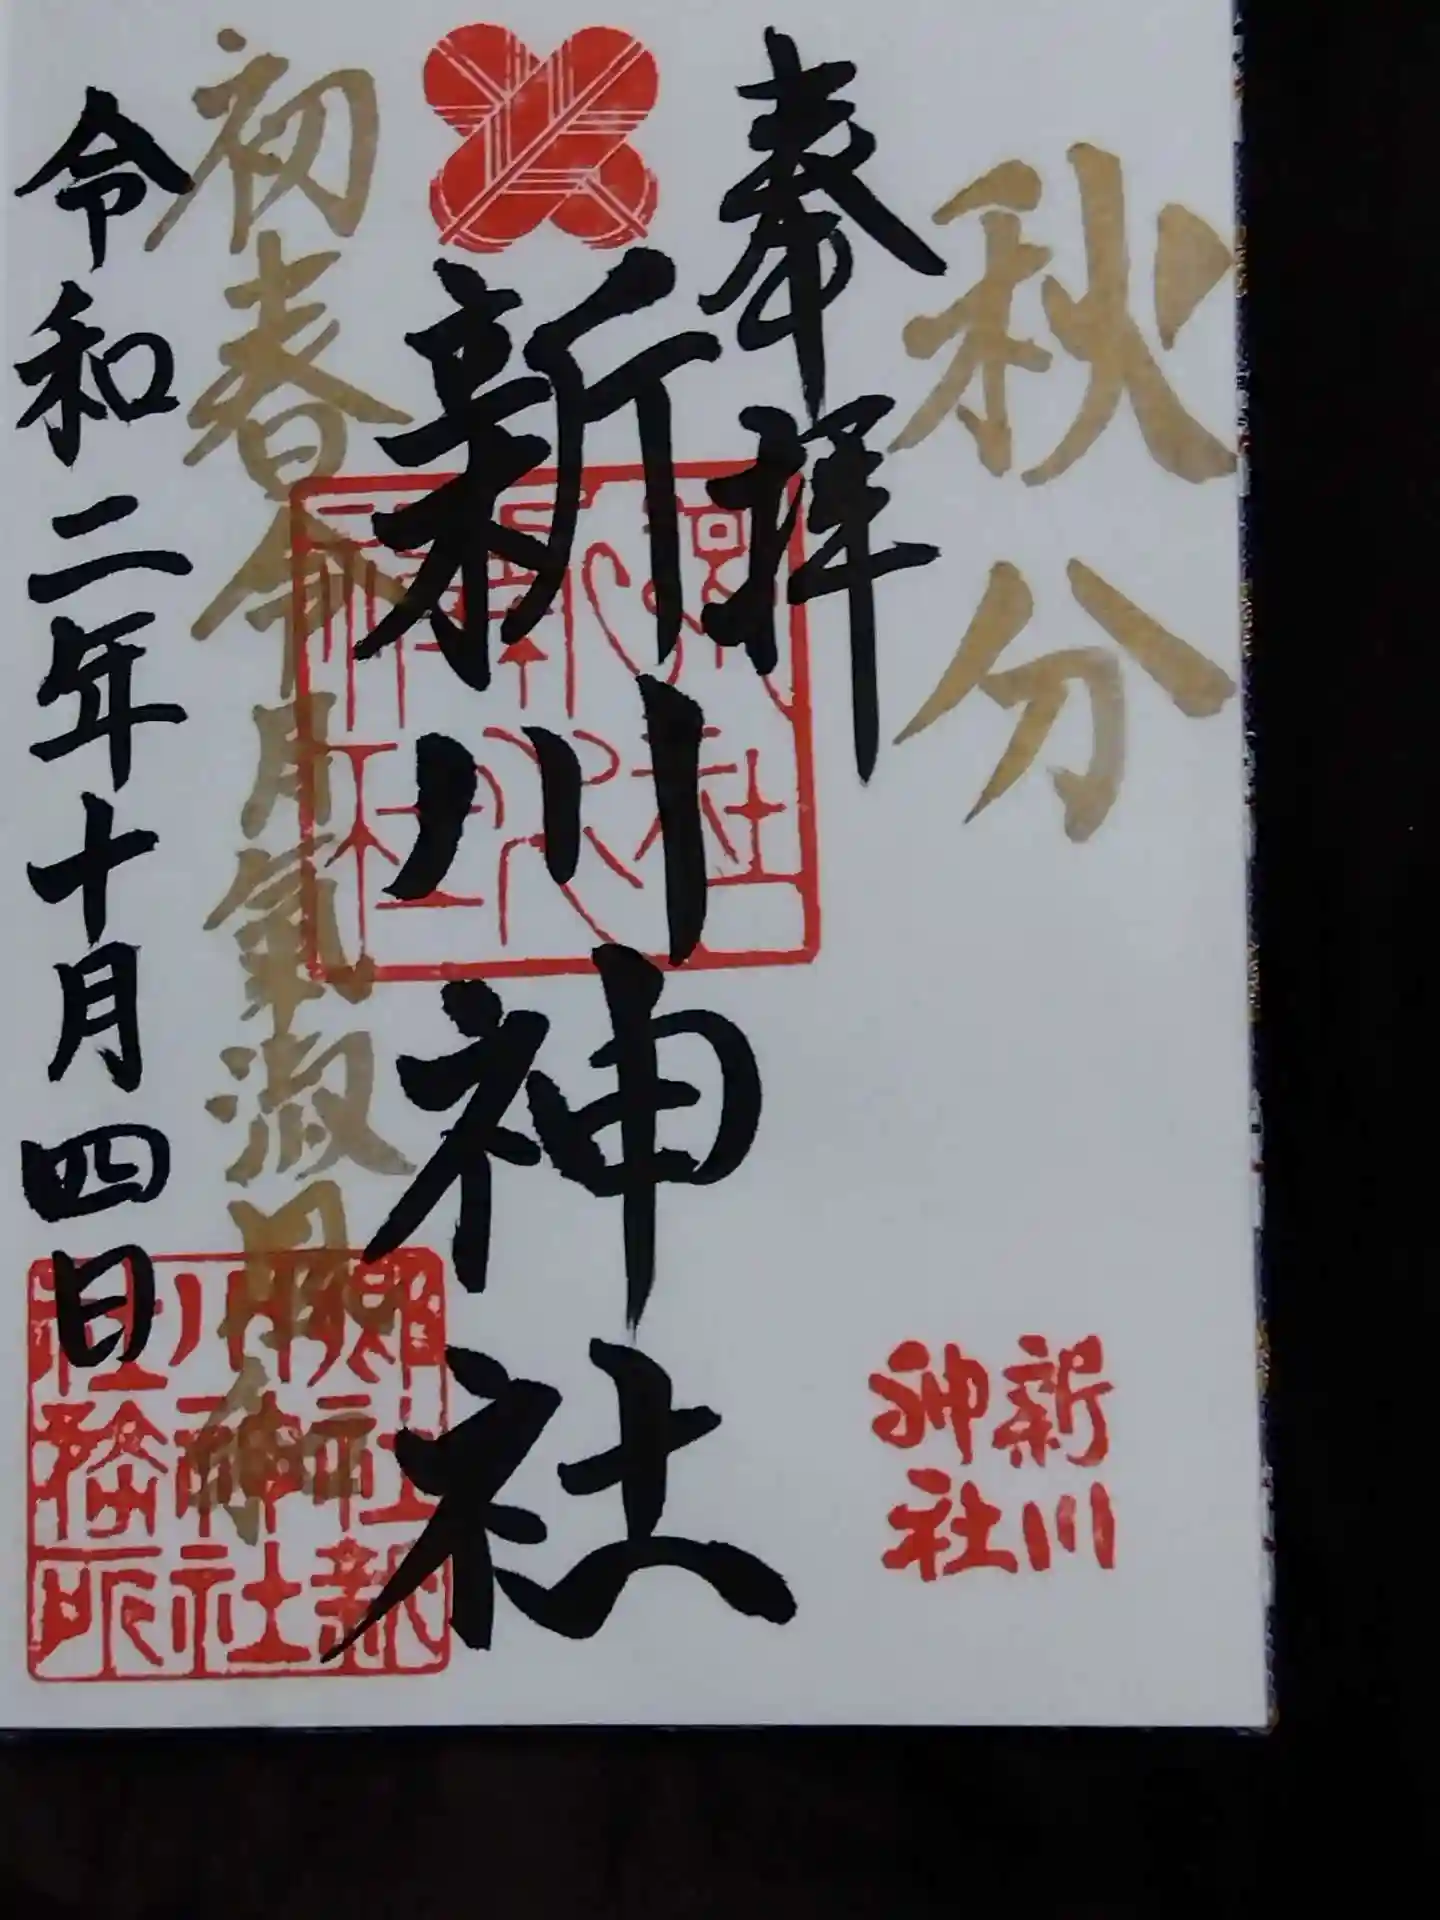 秋分
奉拝
新川
神社
新川神社
初春令月氣淑
令和二年十月四日
郷社新
川神社
社務所